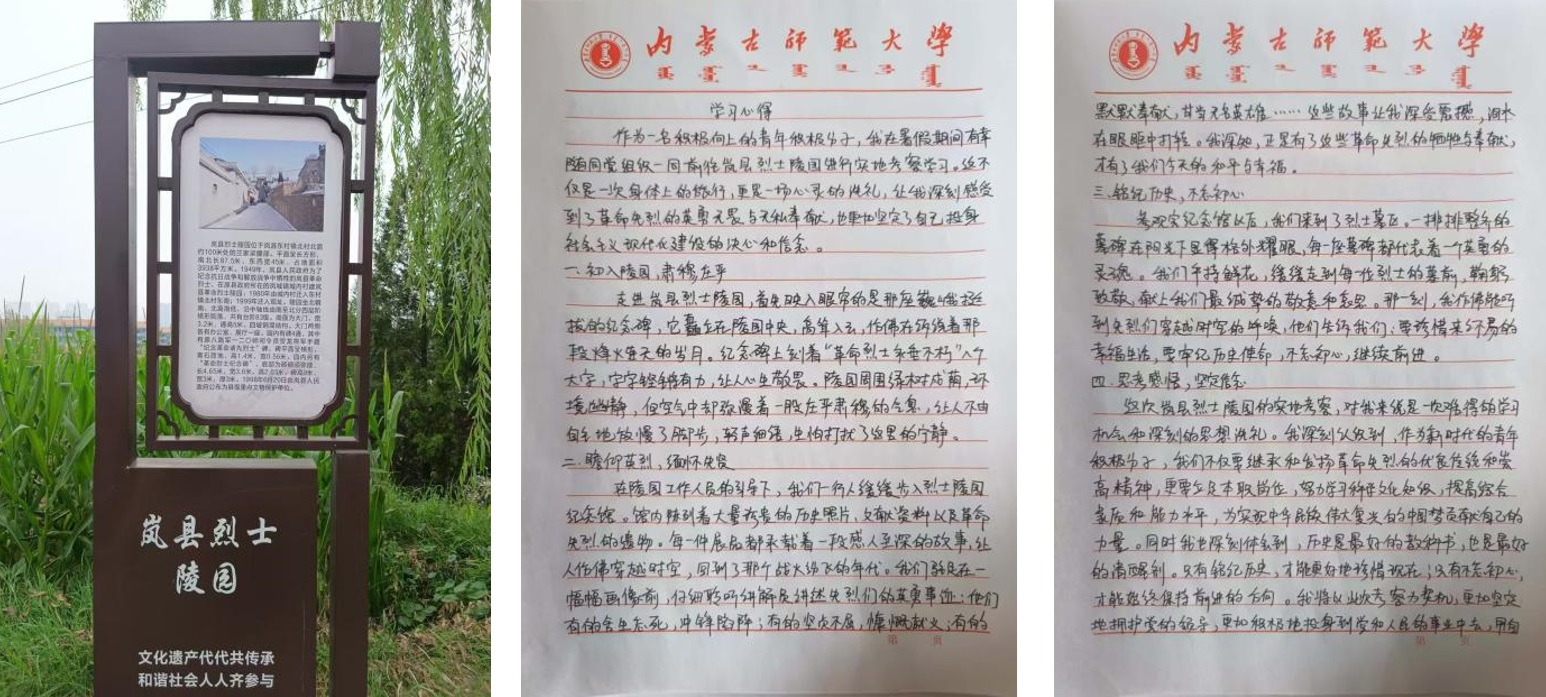 岚县烈士陵园位于岚县东村镇北村北面
约100米处的王家梁塬座，平面呈长方形，
南北长87.5米，东西宽45米，占地面积
3938平方米。1949年，岚县人民政府为了
纪念抗日战争和解放战争中牺牲的岚县革命
烈士，在原县政府所在的岚城镇城内村建岚
县革命烈士陵园；1980年由城内村迁入东村
镇北村东南；1999年迁入现址。陵园坐北朝
岚县烈士
陵园
文化遗产代代共传承
和谐社会人人齐参与
内蒙古师范大学
学习心得
作为一名积极向上的青年积极分子，我在暑假期间有幸
随同党组织一同前往岚县烈士陵园进行实地考察学习。这不
仅是一次身体上的旅行，更是一场心灵的洗礼，让我深刻感受
到了革命先烈的英勇无畏与无私奉献，也更加坚定了自己投身
社会主义现代化建设的决心和信念。
一、初入陵园，肃穆庄严
走进岚县烈士陵园，首先映入眼帘的是那座巍峨挺
拔的纪念碑，它矗立在陵园中央，高耸入云，仿佛在诉说着那
段烽火连天的岁月。纪念碑上刻着“革命烈士永垂不朽”八个
大字，字字铿锵有力，让人心生敬畏。陵园周围绿树成荫，环
境幽静，但空气中却弥漫着一股庄严肃穆的气息，让人不由
自主地放慢了脚步，轻声细语，生怕打扰了这里的宁静。
二、瞻仰英烈，缅怀先贤
在陵园工作人员的引导下，我们一行人缓缓步入烈士陵园
纪念馆。馆内陈列着大量珍贵的历史照片、文献资料以及革命
先烈的遗物。每一件展品都承载着一段感人至深的故事，让
人仿佛穿越时空，回到了那个战火纷飞的年代。我们驻足在一
幅幅画像前，仔细聆听讲解员讲述先烈们的英勇事迹：他们
有的舍生忘死，冲锋陷阵；有的坚贞不屈，慷慨就义；有的
第 页
内蒙古师范大学
默默奉献，甘当无名英雄……这些故事让我深受震撼，泪水
在眼眶中打转。我深知，正是有了这些革命先烈的牺牲与奉献，
才有了我们今天的和平与幸福。
三、铭记历史，不忘初心
参观完纪念馆以后，我们来到了烈士墓区。一排排整齐的
墓碑在阳光下显得格外耀眼，每一座墓碑都代表着一个英勇的
灵魂。我们手持鲜花，缓缓走到每一位烈士的墓前，鞠躬
致敬，献上我们最诚挚的敬意和哀思。那一刻，我仿佛能听
到先烈们穿越时空的呼唤，他们告诉我们：要珍惜来之不易的
幸福生活，要牢记历史使命，不忘初心，继续前进。
四、思考感悟，坚定信念
这次岚县烈士陵园的实地考察，对我来说是一次难得的学习
机会和深刻的思想洗礼。我深刻认识到，作为新时代的青年
积极分子，我们不仅要继承和发扬革命先烈的优良传统和崇
高精神，更要立足本职岗位，努力学习科学文化知识，提高综合
素质和能力水平，为实现中华民族伟大复兴的中国梦贡献自己的
力量。同时我也深刻体会到，历史是最好的教科书，也是最好
的清醒剂。只有铭记历史，才能更好地珍惜现在；只有不忘初心，
才能始终保持前进的方向。我将以此次考察为契机，更加坚定
地拥护党的领导，更加积极地投身到党和人民的事业中去，用自
第 页